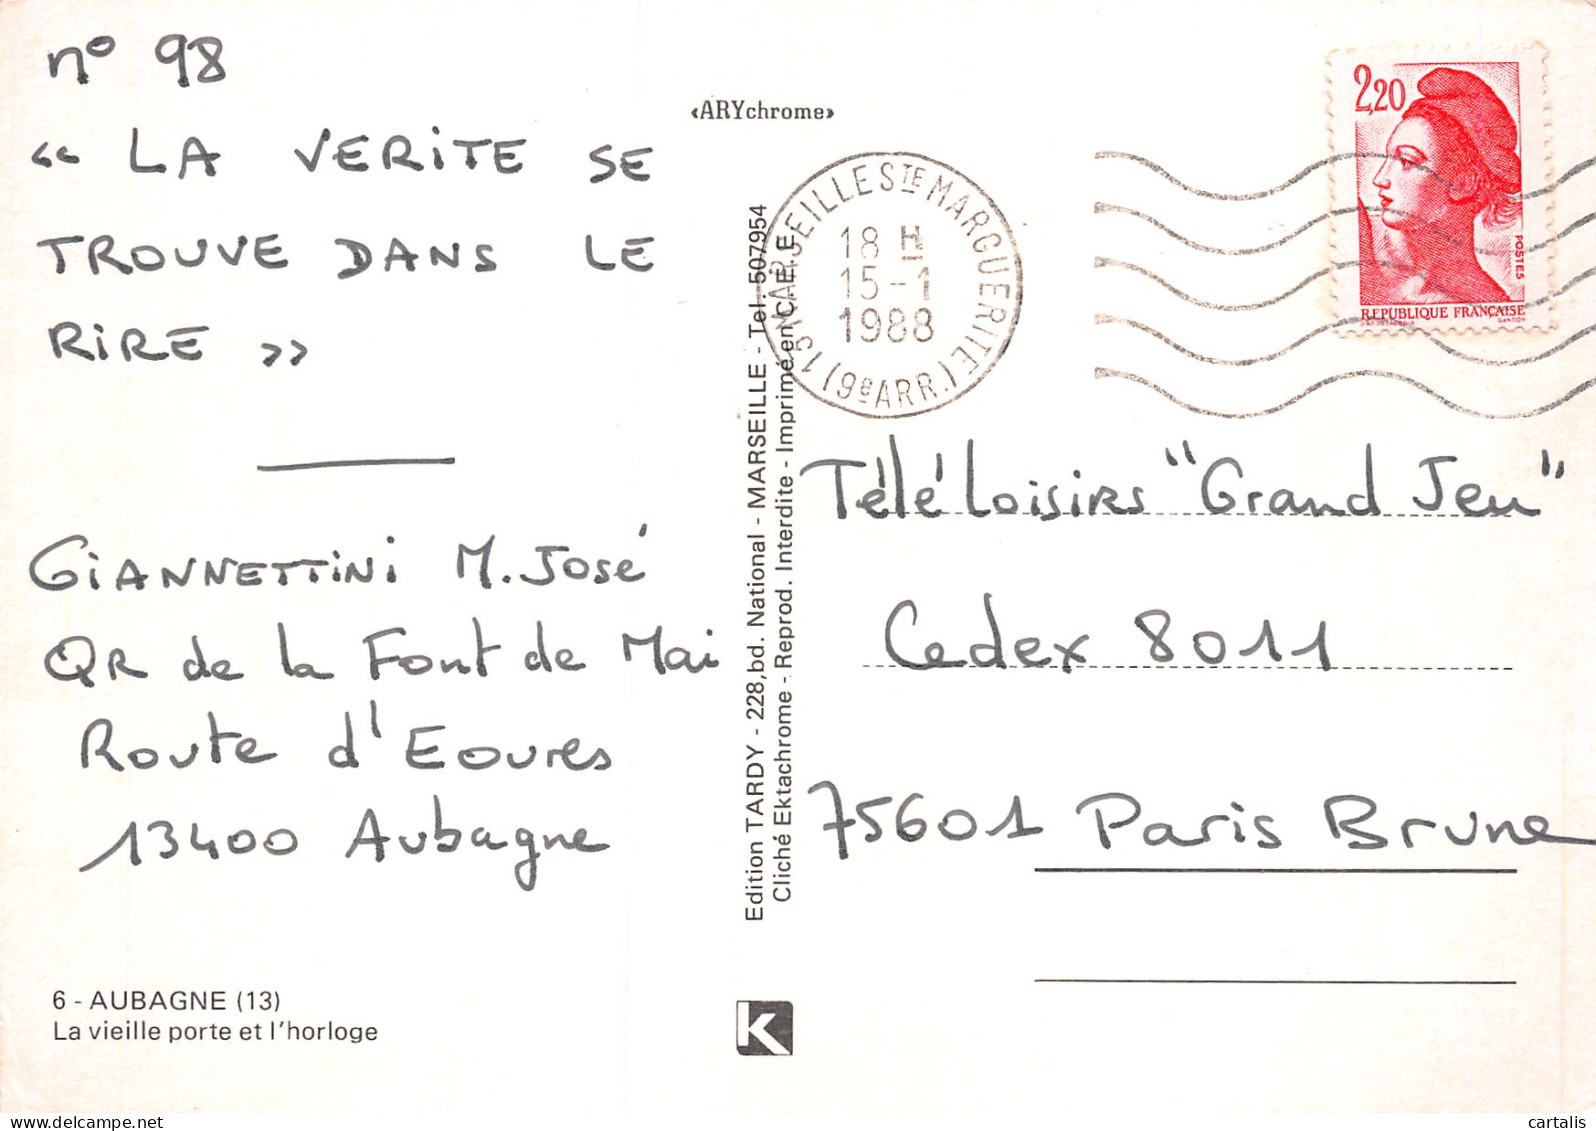 n° 98
« LA VERITE SE
TROUVE DANS LE
RIRE »
GIANNETTINI M. José
QR de la Font de Mai
Route d'Eoures
13400 Aubagne
6 - AUBAGNE (13)
La vieille porte et l'horloge
«ARYchrome»
Edition TARDY - 228, bd. National - MARSEILLE - Tel. 507954
Cliché Ektachrome - Reprod. Interdite - Imprimé en C.E.E.
K
13 MARSEILLE STE MARGUERITE (9e ARR.)
18 H
15-1
1988
2,20
POSTES
REPUBLIQUE FRANÇAISE
GANDON
Télé Loisirs "Grand Jeu"
Cedex 8011
75601 Paris Brune
delcampe.net
cartalis